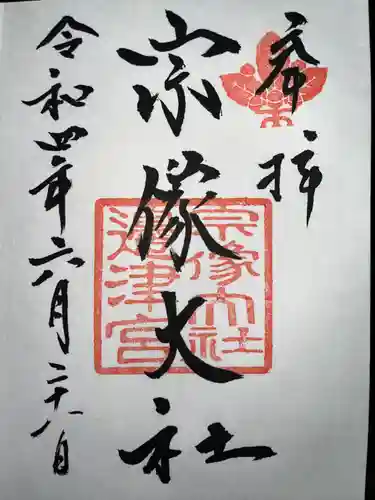 奉拝
宗像大社
宗像大社
邉津宮
令和四年六月二十八日